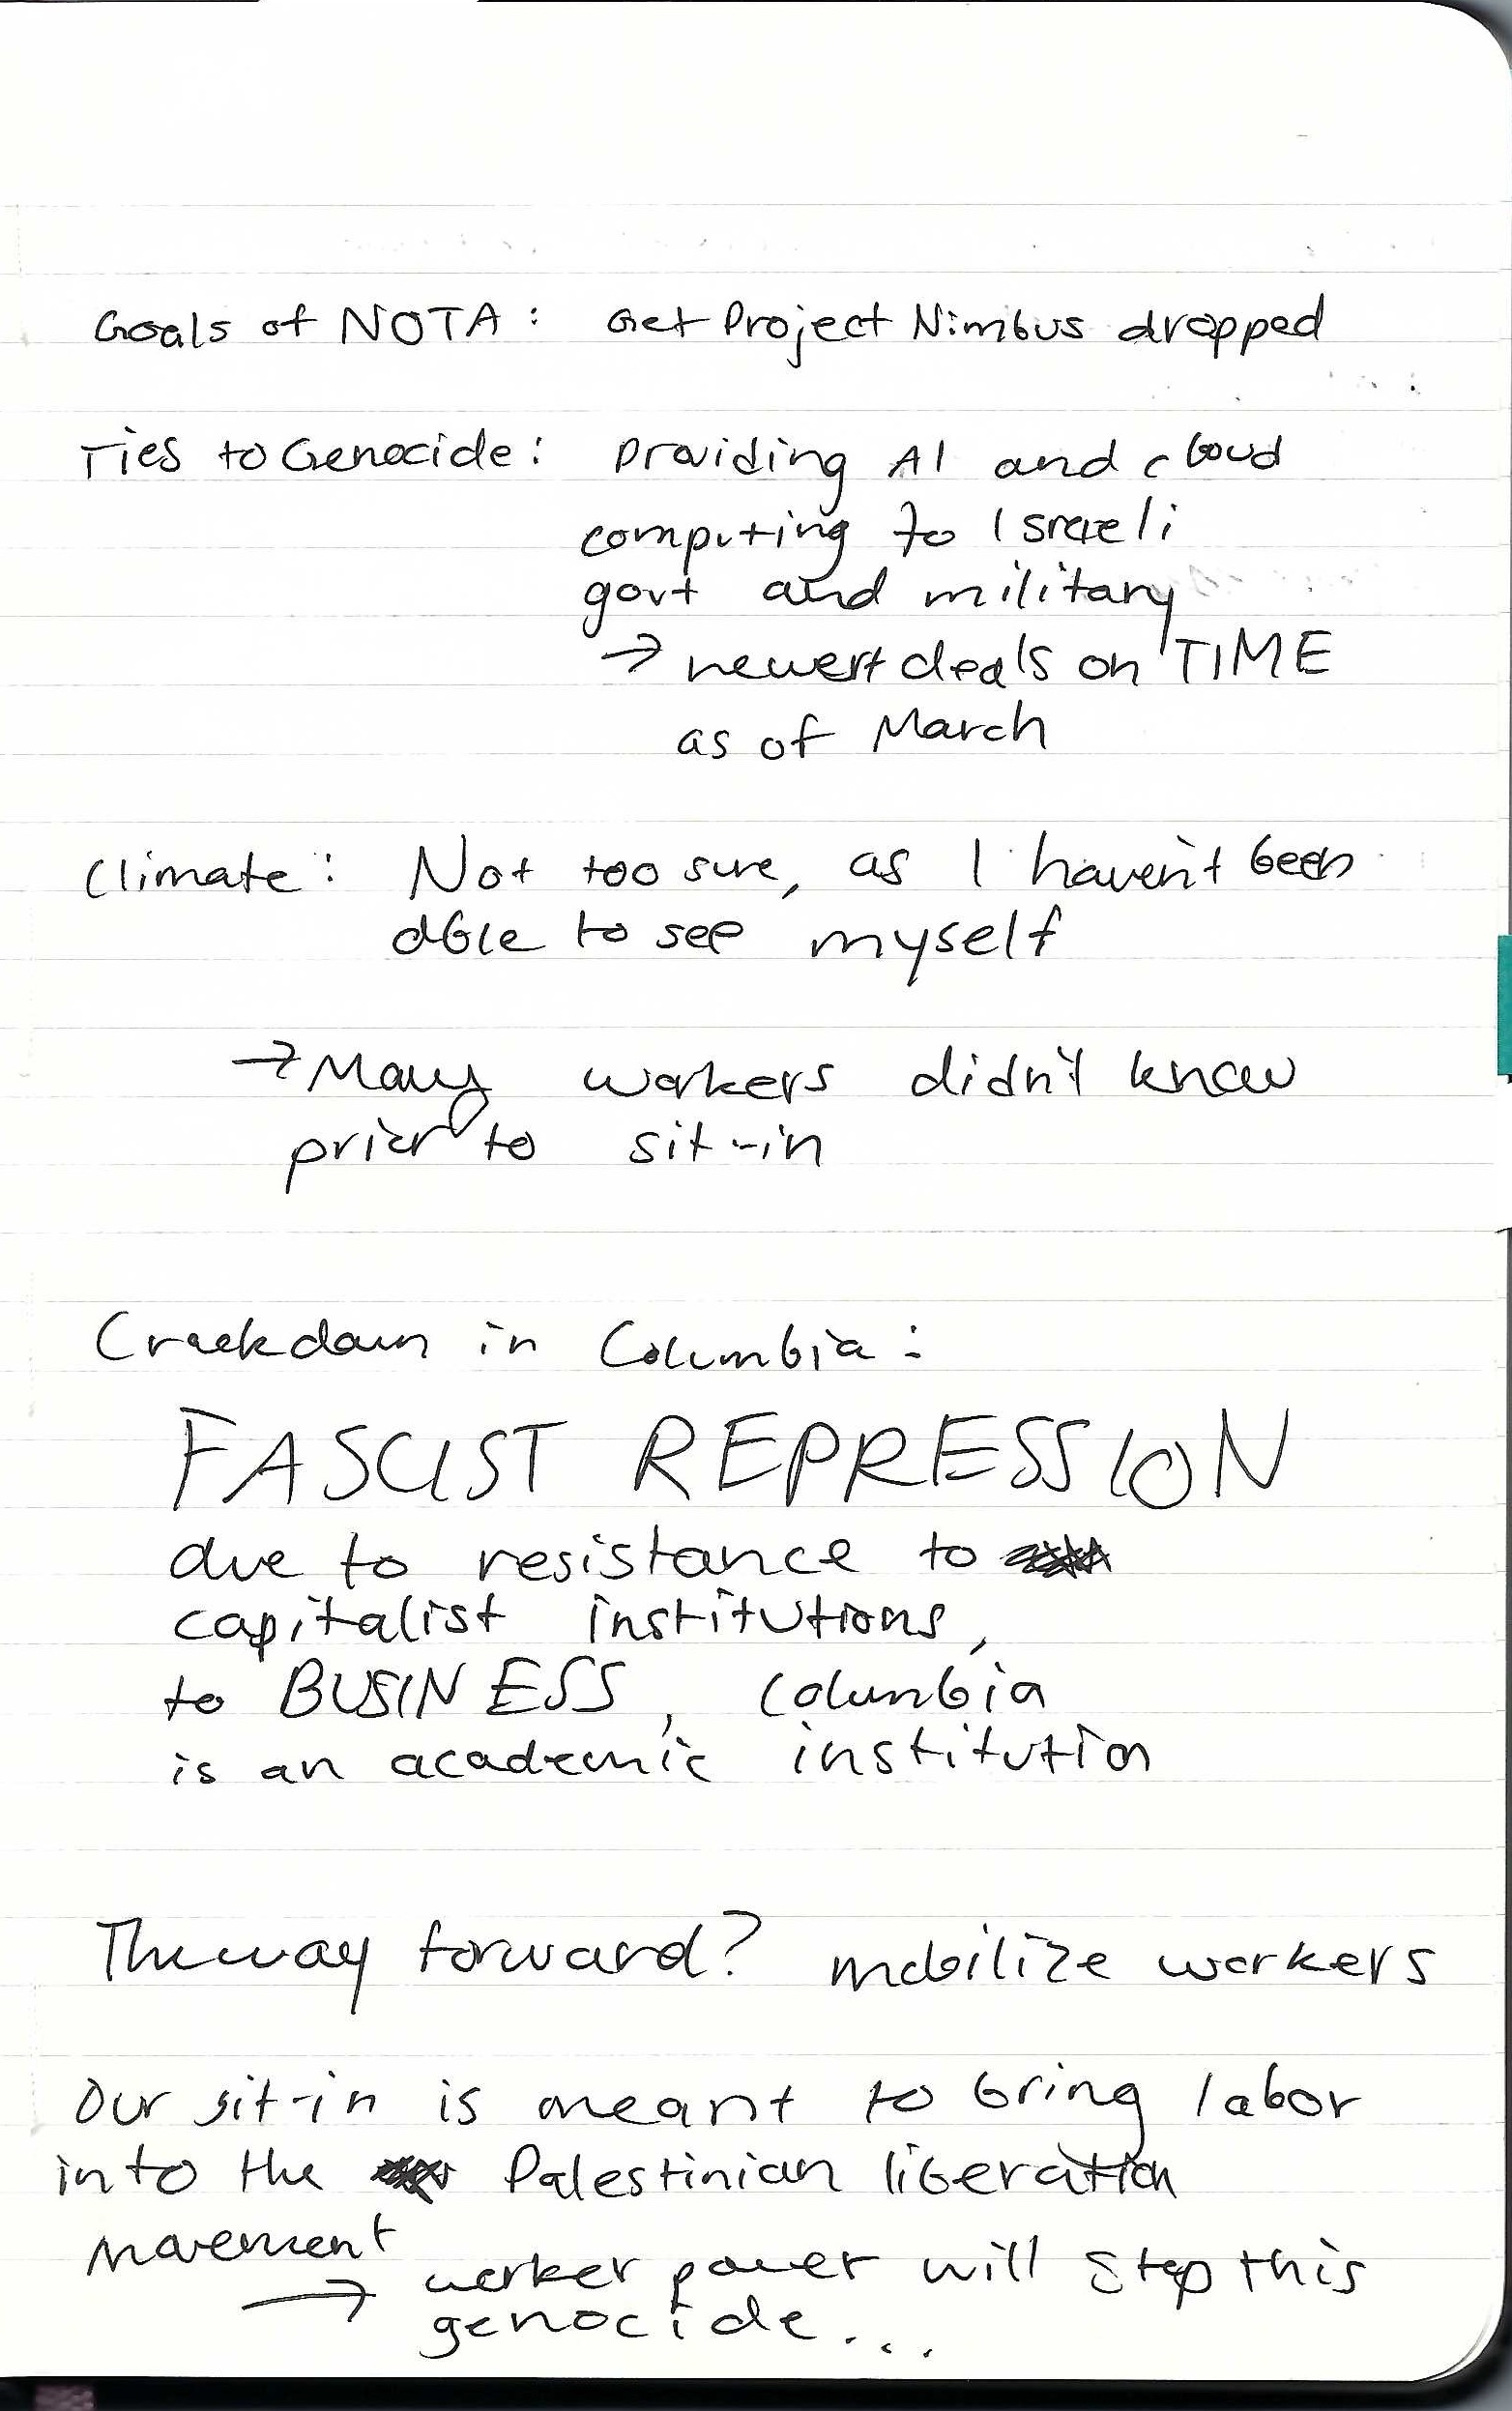 Goals of NOTA: Get Project Nimbus dropped
Ties to Genocide: providing AI and cloud
computing to Israeli
govt and military
→ newest deals on TIME
as of March
Climate: Not too sure, as I haven't been
able to see myself
→ Many workers didn't know
prior to sit-in
Crackdown in Columbia:
FASCIST REPRESSION
due to resistance to
capitalist institutions,
to BUSINESS, Columbia
is an academic institution
The way forward? mobilize workers
Our sit-in is meant to bring labor
into the Palestinian liberation
movement
→ worker power will stop this
genocide...